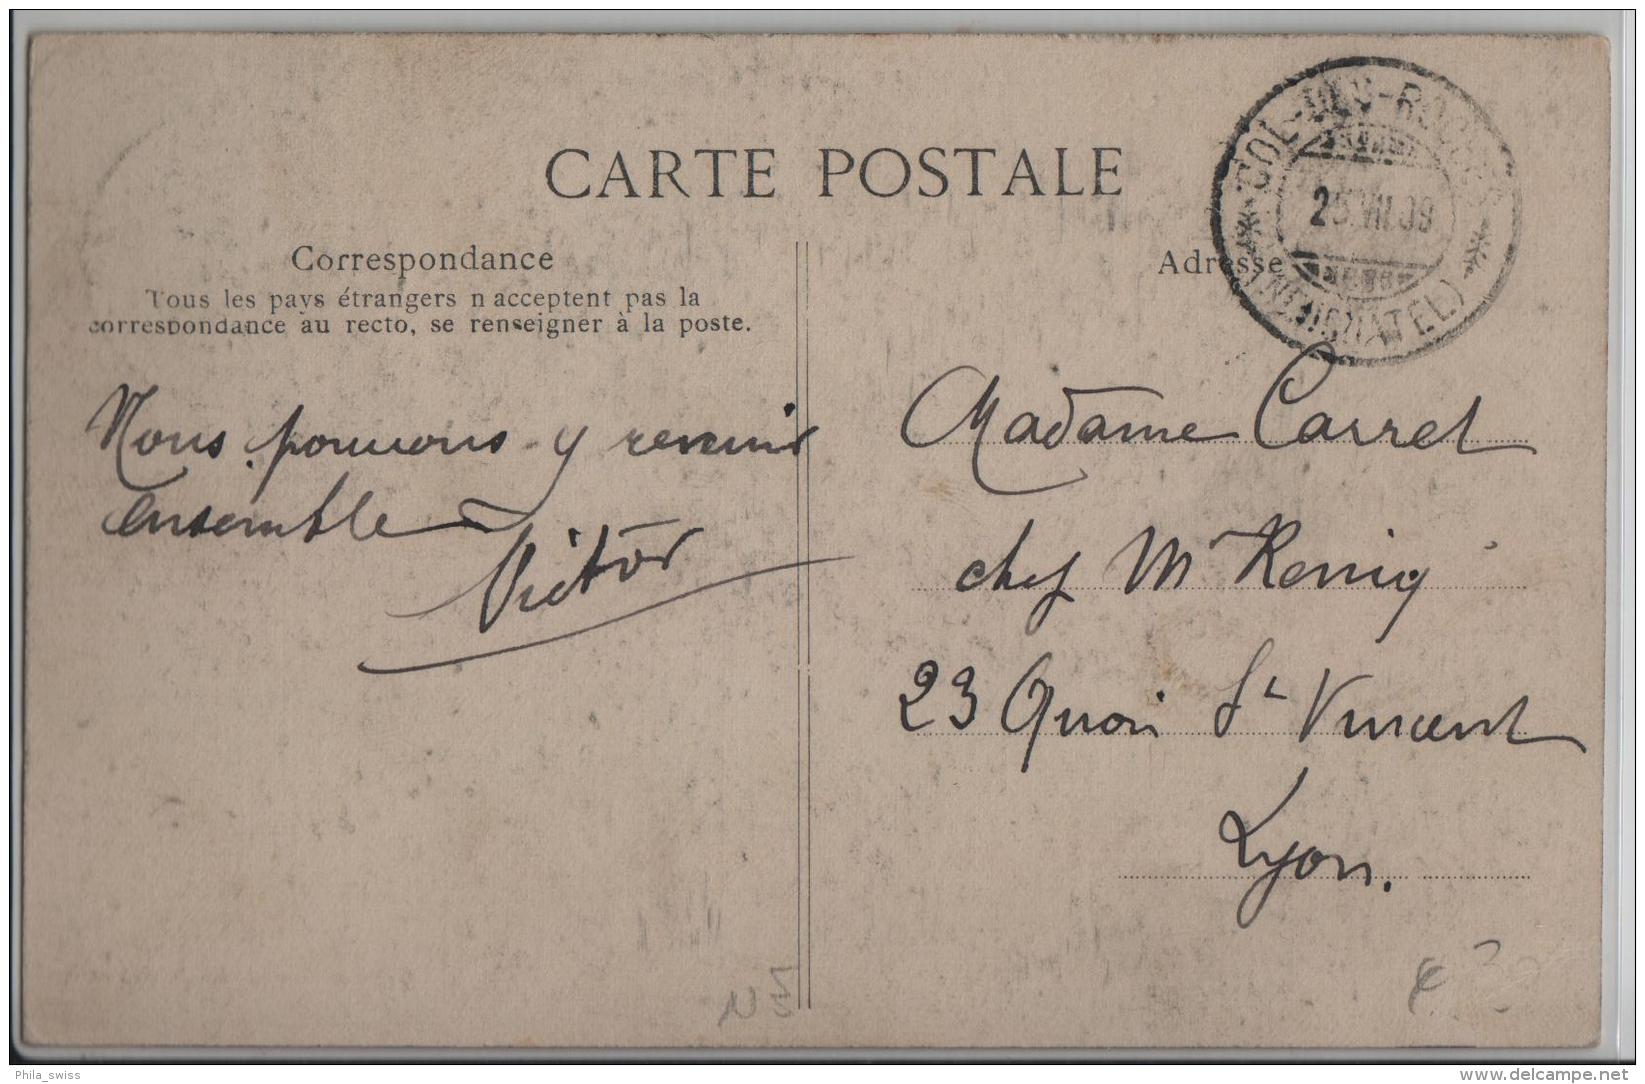 CARTE POSTALE
COL-DES-ROCHES
25.VII.09
(NEUCHATEL)
Correspondance
Tous les pays étrangers n'acceptent pas la
correspondance au recto, se renseigner à la poste.
Adresse
Nous pouvons y revenir
ensemble
Victor
Madame Carret
chez Mr Kenig
23 Quai St Vincent
Lyon.
Phila_swiss
www.delcampe.net